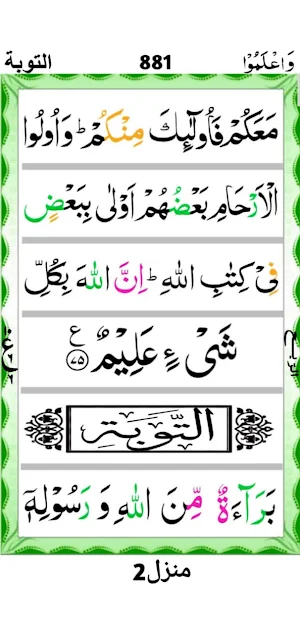 وَاعْلَمُوْۤا 881 التوبة
مَعَكُمْ فَاُولٰٓئِكَ مِنْكُمْ ؕ وَ اُولُوا
الْاَرْحَامِ بَعْضُهُمْ اَوْلٰى بِبَعْضٍ
فِیْ كِتٰبِ اللّٰهِ ؕ اِنَّ اللّٰهَ بِكُلِّ
شَیْءٍ عَلِیْمٌ ۧ ﴿۷۵﴾
التَّوْبَةِ
بَرَآءَةٌ مِّنَ اللّٰهِ وَ رَسُوْلِهٖۤ
منزل2